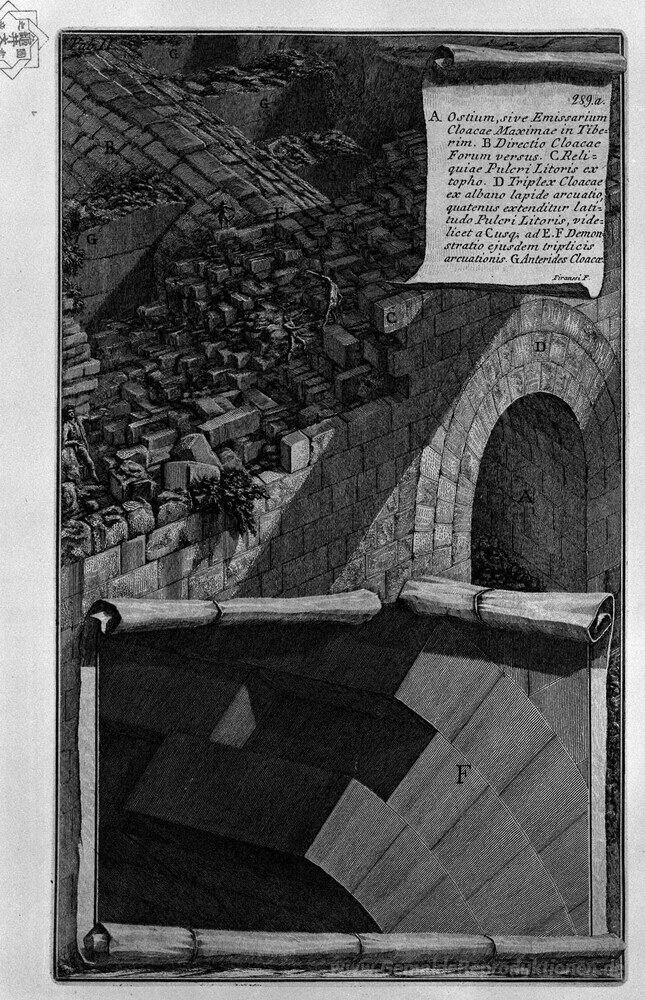 Tab. II.
G
G
289.a.
A Ostium, sive Emissarium
Cloacae Maximae in Tibe=
rim. B Directio Cloacae
Forum versus. C Reli=
quiae Pulcri Litoris ex
topho. D Triplex Cloacae
ex albano lapide arcuatio,
quatenus extenditur lati=
tudo Pulcri Litoris, vide=
licet a C usq. ad E. F Demon
stratio ejusdem triplicis
arcuationis. G Anterides Cloacæ
Piranesi F.
B
E
G
C
D
A
F